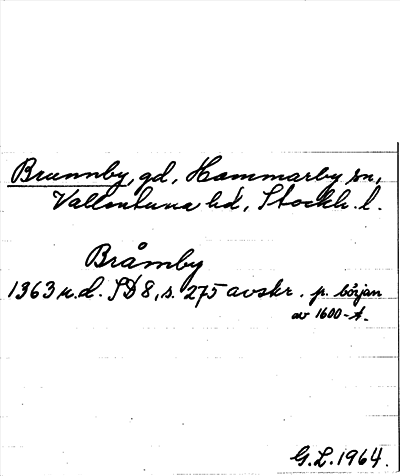 Brunnby, gd, Hammarby sn,
Vallentuna hd, Stockh. l.
Bråmby
1363 u.d. SD 8, s. 275 avskr. p. början
av 1600-t.
G.L. 1964.